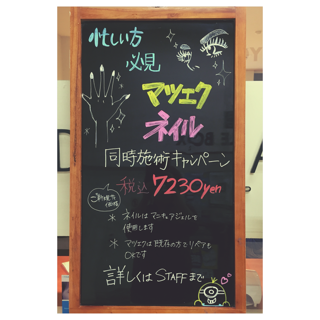 忙しい方
必見
マツエク
ネイル
同時施術キャンペーン
税込 7230yen
ご新規方
価格
＊ ネイルはマニキュアジェルを
使用します
＊ マツエクは既存の方でリペアも
OKです
詳しくはSTAFFまで